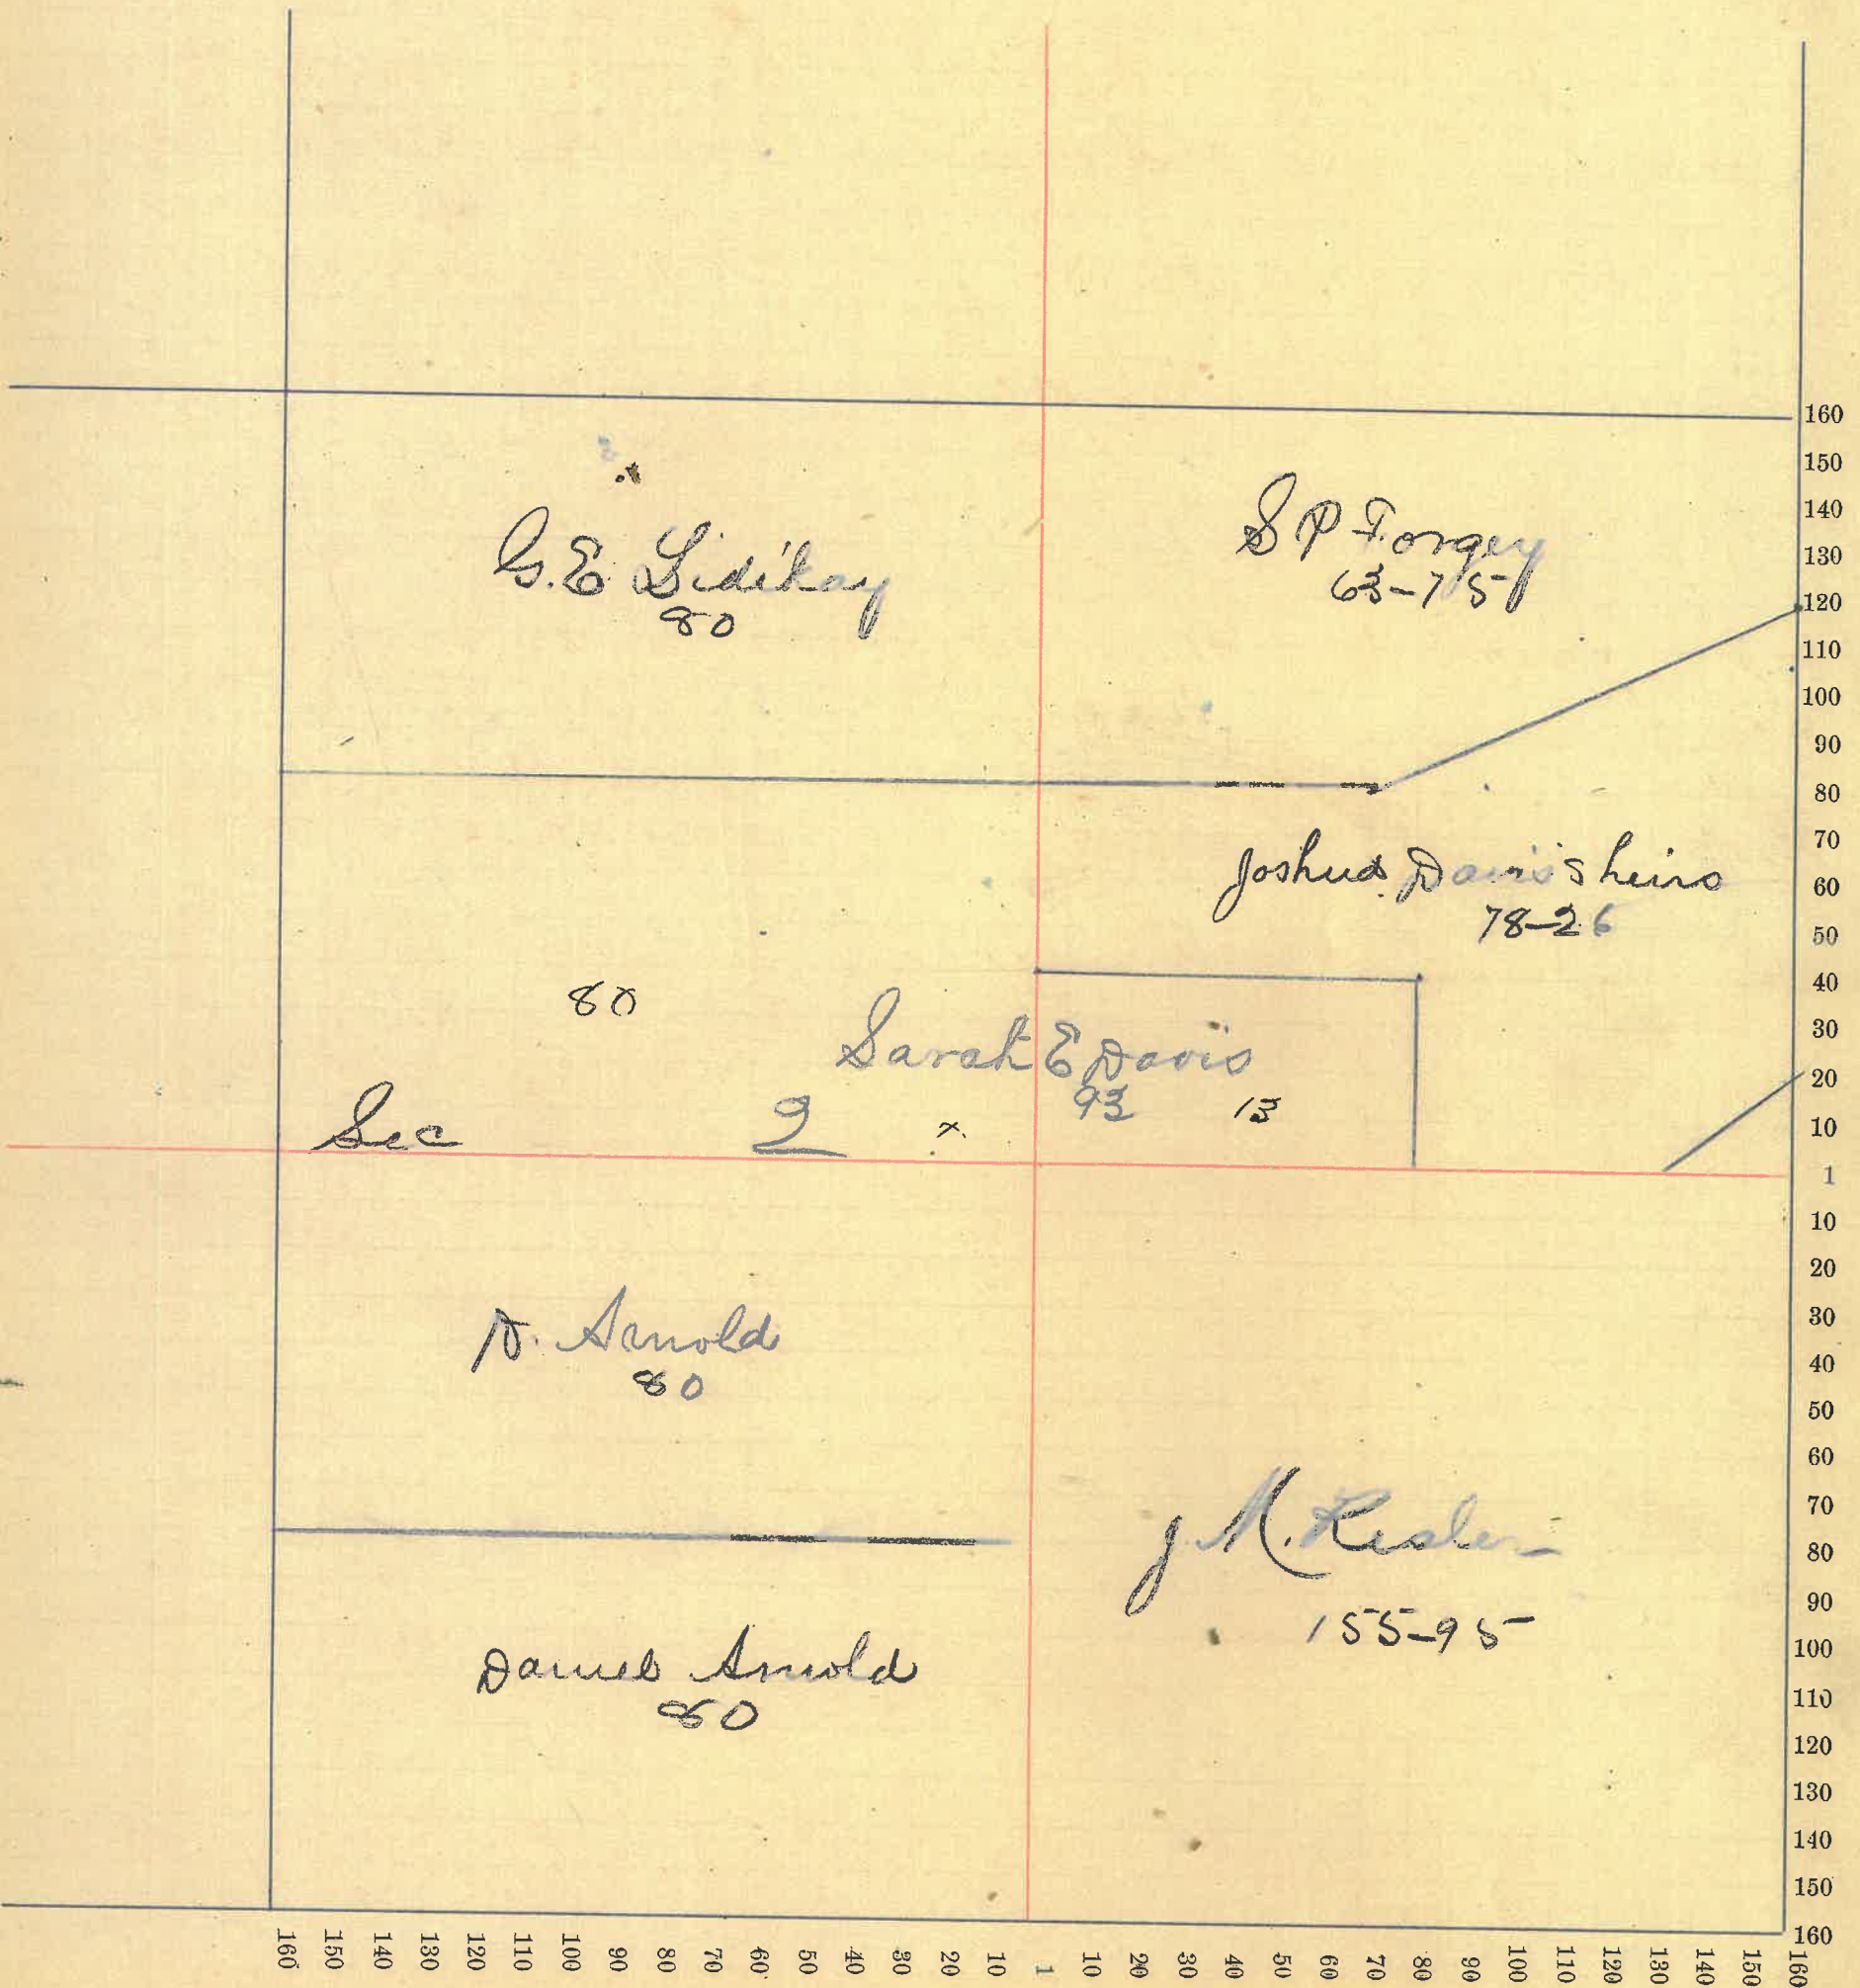 G. E. Sidikay
80
S P Forgey
63-75
Joshua Davis's heirs
78-26
80
Sarah E Davis
93 13
Sec 2 x
A. Arnold
80
J M. Kesler
155-95
Daniel Arnold
80
160
150
140
130
120
110
100
90
80
70
60
50
40
30
20
10
1
10
20
30
40
50
60
70
80
90
100
110
120
130
140
150
160
160 150 140 130 120 110 100 90 80 70 60 50 40 30 20 10 1 10 20 30 40 50 60 70 80 90 100 110 120 130 140 150 160